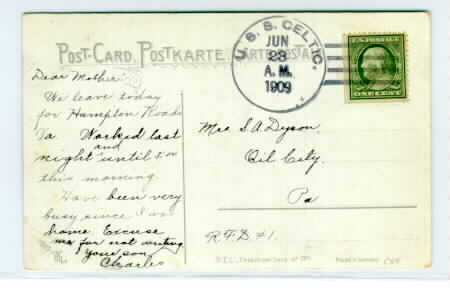 Post-Card. Postkarte.
U.S.S. CELTIC.
JUN
23
A.M.
1909
ONE CENT
Dear Mother:
We leave today
for Hampton Roads
Va. Worked last
and
night until
this morning.
Have been very
busy since I was
home Excuse
me for not writing.
Your son
Charles
Mrs S.A. Dyson
Oil City.
Pa
R.F.D #1.